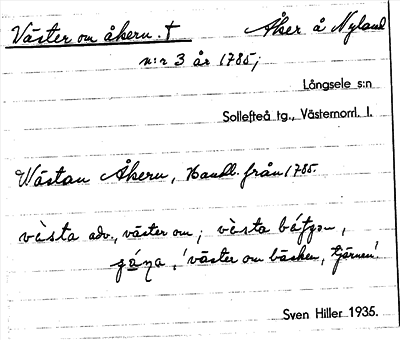 Väster om åkern. † Åker å Nyland
n:r 3 år 1785;
Långsele s:n
Sollefteå tg., Västernorrl. l.
Wästan Åkern, Handl. från 1785.
vèsta adv., väster om; vèsta
'väster om bäcken, tjärnen'.
Sven Hiller 1935.